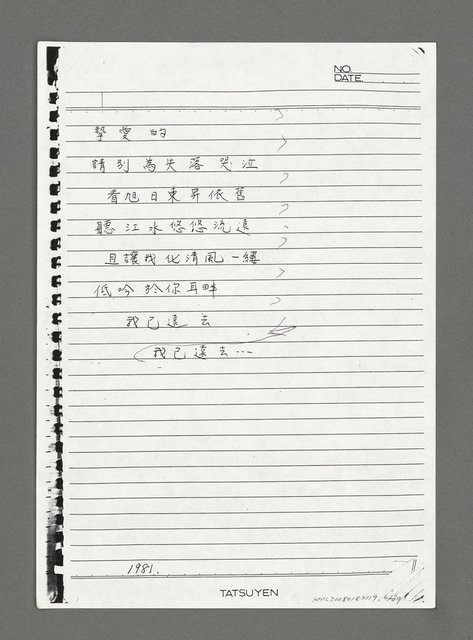 NO.
DATE
摯愛的
請別為失落哭泣
看旭日東昇依舊
聽江水悠悠流遠
且讓我化清風一縷
低吟於你耳畔
我已遠去
我已遠去…
1981.
TATSUYEN
NMTL20080182119